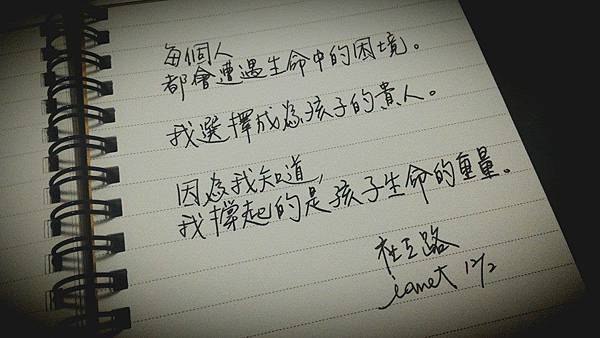 每個人
都會遭遇生命中的困境。
我選擇成為孩子的貴人。
因為我知道,
我撐起的是孩子生命的重量。
社工路
janet 12/2